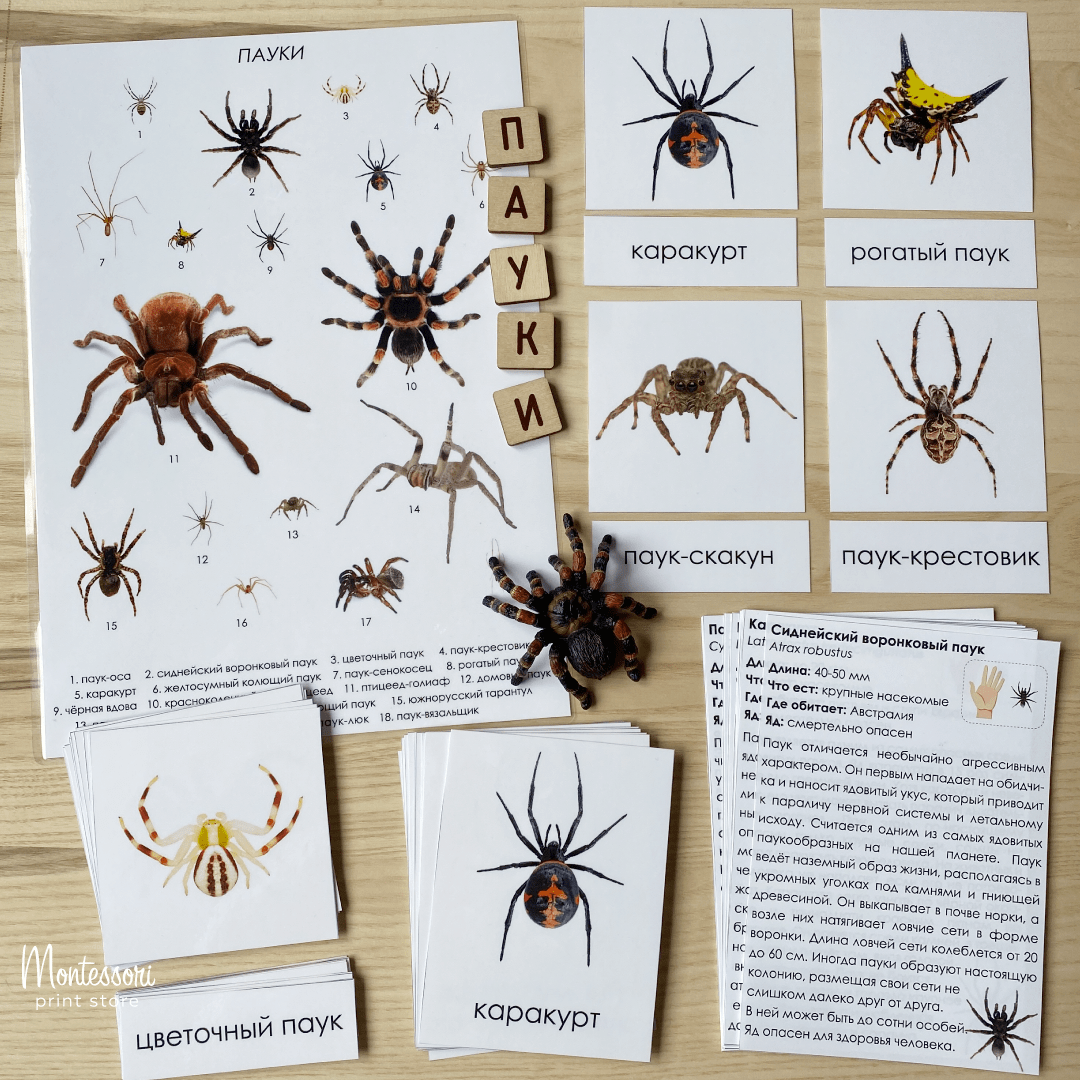 ПАУКИ
1
2
3
4
5
6
7
8
9
10
11
12
13
14
15
16
17
1. паук-оса 2. сиднейский воронковый паук 3. цветочный паук 4. паук-крестовик
5. каракурт 6. желтосумный колющий паук 7. паук-сенокосец 8. рогатый паук
9. чёрная вдова 10. 11. птицеед-голиаф 12.
15. южнорусский тарантул
18. паук-вязальщик
П
А
У
К
И
каракурт
рогатый паук
паук-скакун
паук-крестовик
цветочный паук
каракурт
Сиднейский воронковый паук
Atrax robustus
Длина: 40-50 мм
Что ест: крупные насекомые
Где обитает: Австралия
Яд: смертельно опасен
Паук отличается необычайно агрессивным
характером. Он первым нападает на обидчи-
ка и наносит ядовитый укус, который приводит
к параличу нервной системы и летальному
исходу. Считается одним из самых ядовитых
паукообразных на нашей планете. Паук
ведёт наземный образ жизни, располагаясь в
укромных уголках под камнями и гниющей
древесиной. Он выкапывает в почве норки, а
возле них натягивает ловчие сети в форме
воронки. Длина ловчей сети колеблется от 20
до 60 см. Иногда пауки образуют настоящую
колонию, размещая свои сети не
слишком далеко друг от друга.
В ней может быть до сотни особей.
Яд опасен для здоровья человека.
Montessori
print store